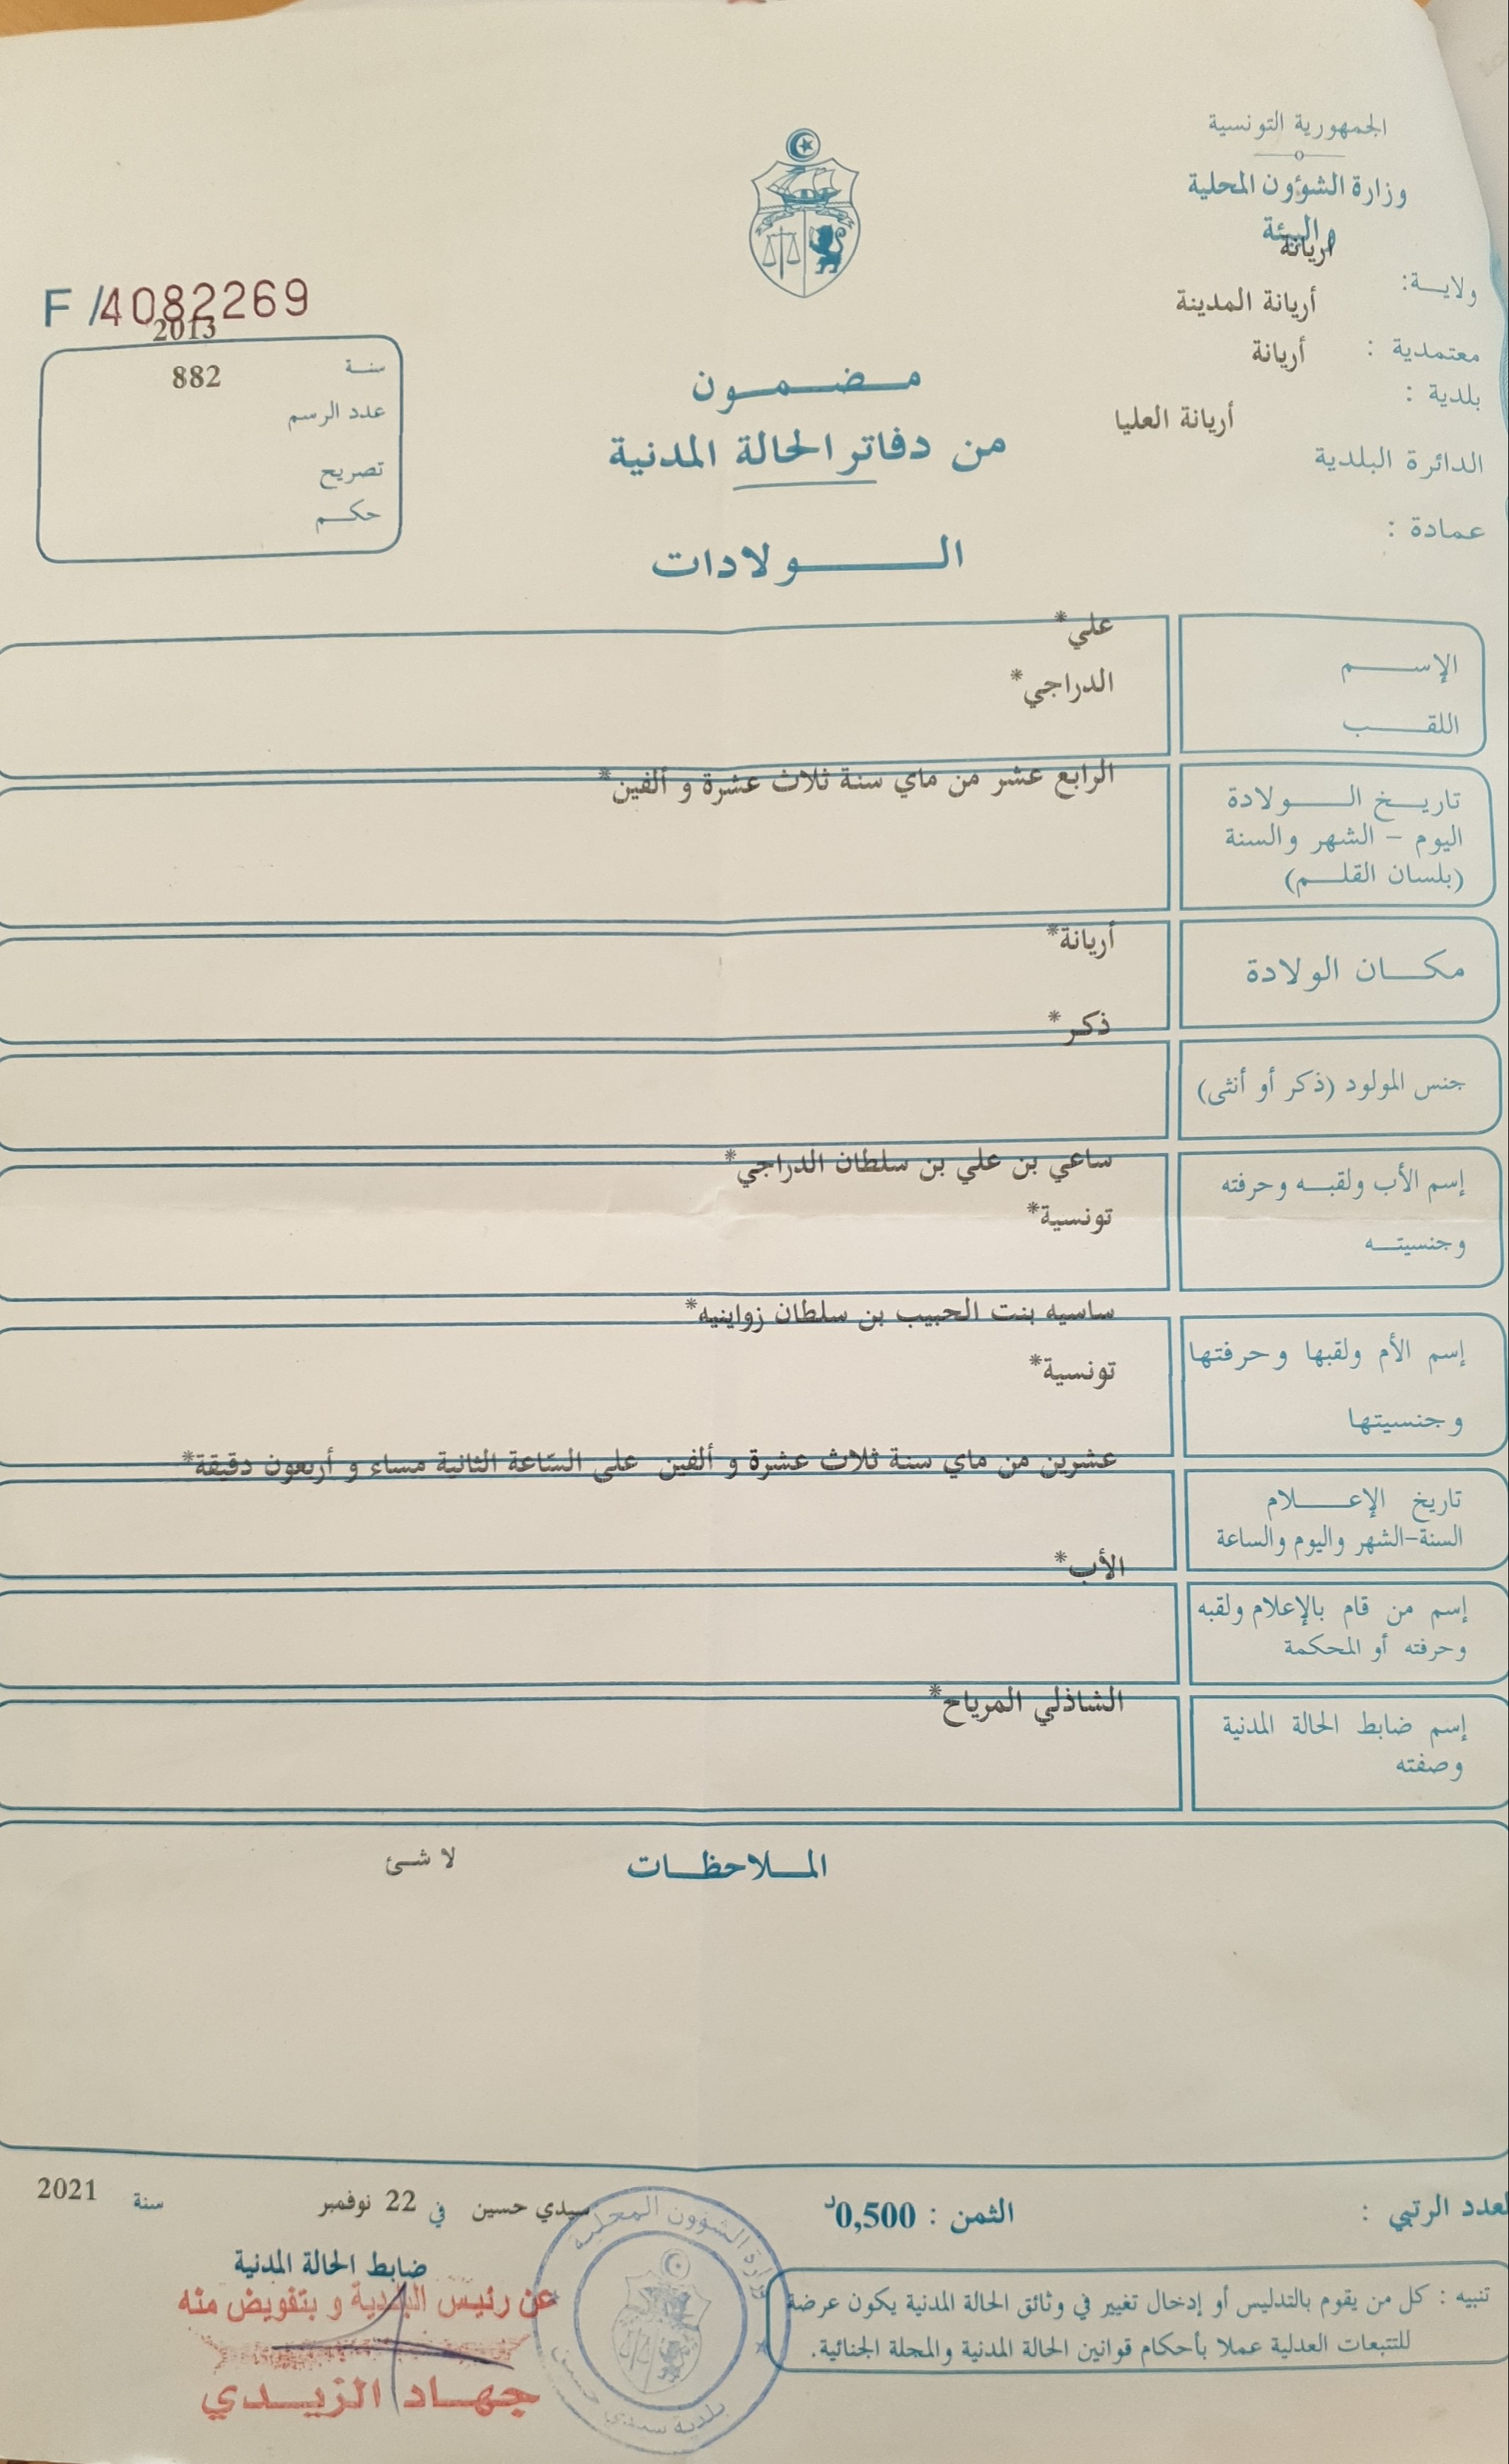 الجمهورية التونسية
وزارة الشؤون المحلية
والبيئة
ولايـــة: اريانة
معتمدية : أريانة المدينة
بلدية : أريانة
الدائرة البلدية أريانة العليا
عمادة :
F/4082269
سنـة 2013
عدد الرسم 882
تصريح
حكــم
مــضــمــون
من دفاتر الحالة المدنية
الــــولادات
الإســـم علي*
اللقـــب الدراجي*
تاريــخ الـــولادة الرابع عشر من ماي سنة ثلاث عشرة و ألفين*
اليوم - الشهر والسنة
(بلسان القلــم)
مكـــان الولادة أريانة*
جنس المولود (ذكر أو أنثى) ذكر*
إسم الأب ولقبــه وحرفته ساعي بن علي بن سلطان الدراجي*
وجنسيتــه تونسية*
إسم الأم ولقبها وحرفتها ساسيه بنت الحبيب بن سلطان زواينيه*
وجنسيتها تونسية*
تاريخ الإعـــلام عشرين من ماي سنة ثلاث عشرة و ألفين على السّاعة الثانية مساء و أربعون دقيقة*
السنة-الشهر واليوم والساعة
إسم من قام بالإعلام ولقبه الأب*
وحرفته أو المحكمة
إسم ضابط الحالة المدنية الشاذلي المرياح*
وصفته
المــلاحظــات لا شئ
لعدد الرتبي :
الثمن : 0,500د
سيدي حسين في 22 نوفمبر سنة 2021
ضابط الحالة المدنية
عن رئيس البلدية و بتفويض منه
جهـاد الزيـدي
وزارة الشؤون المحلية
بلدية سيدي حسين
تنبيه : كل من يقوم بالتدليس أو إدخال تغيير في وثائق الحالة المدنية يكون عرضة
للتتبعات العدلية عملا بأحكام قوانين الحالة المدنية والمجلة الجنائية.